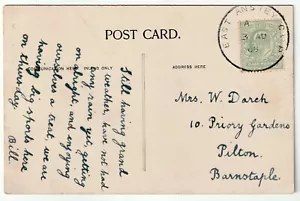 POST CARD.
INLAND ONLY
ADDRESS HERE
EAST ANSTEY
A
3 AU
Still having grand
weather, have not had
any rain yet, getting
on alright, and enjoying
ourselves a treat, we are
having big sports here
on thursday.
Bill.
Mrs. W. Darch
10. Priory Gardens
Pilton.
Barnstaple.